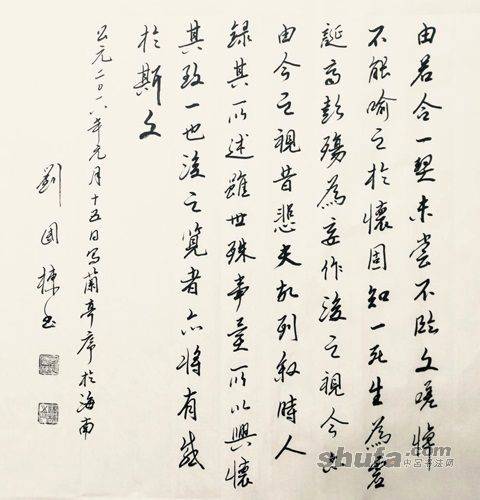 由若合一契未嘗不臨文嗟悼
不能喻之於懷固知一死生為虛
誕齊彭殤為妄作後之視今亦
由今之視昔悲夫故列叙時人
録其所述雖世殊事異所以興懷
其致一也後之覽者亦將有感
於斯文
公元二〇一八年元月十五日寫蘭亭序於海南
劉國棟书
shufa.com
中国书法网